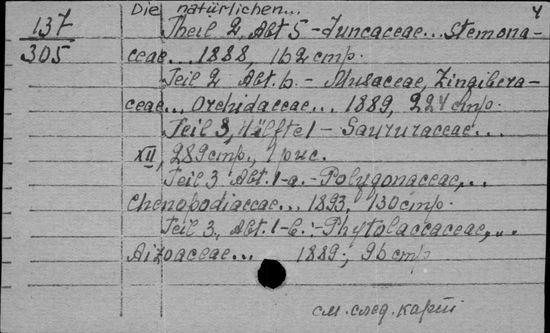 Die natürlichen... 4
137
305
Theil 2, Abt 5 - Juncaceae... Stemona-
ceae... 1888, 162 стр.
Teil 2 Abt. 6. - Musaceae, Zingibera-
ceae... Orchidaceae... 1889, 224 стр.
Teil 3, Hälfte 1 - Saururaceae...
XII, 289 стр., 1 рис.
Teil 3 Abt. 1-a. - Polygonaceae,..
Chenopodiaceae... 1893, 130 стр.
Teil 3, Abt. 1-b. - Phytolaccaceae,..
Aizoaceae... 1889; 96 стр
см. след. карт